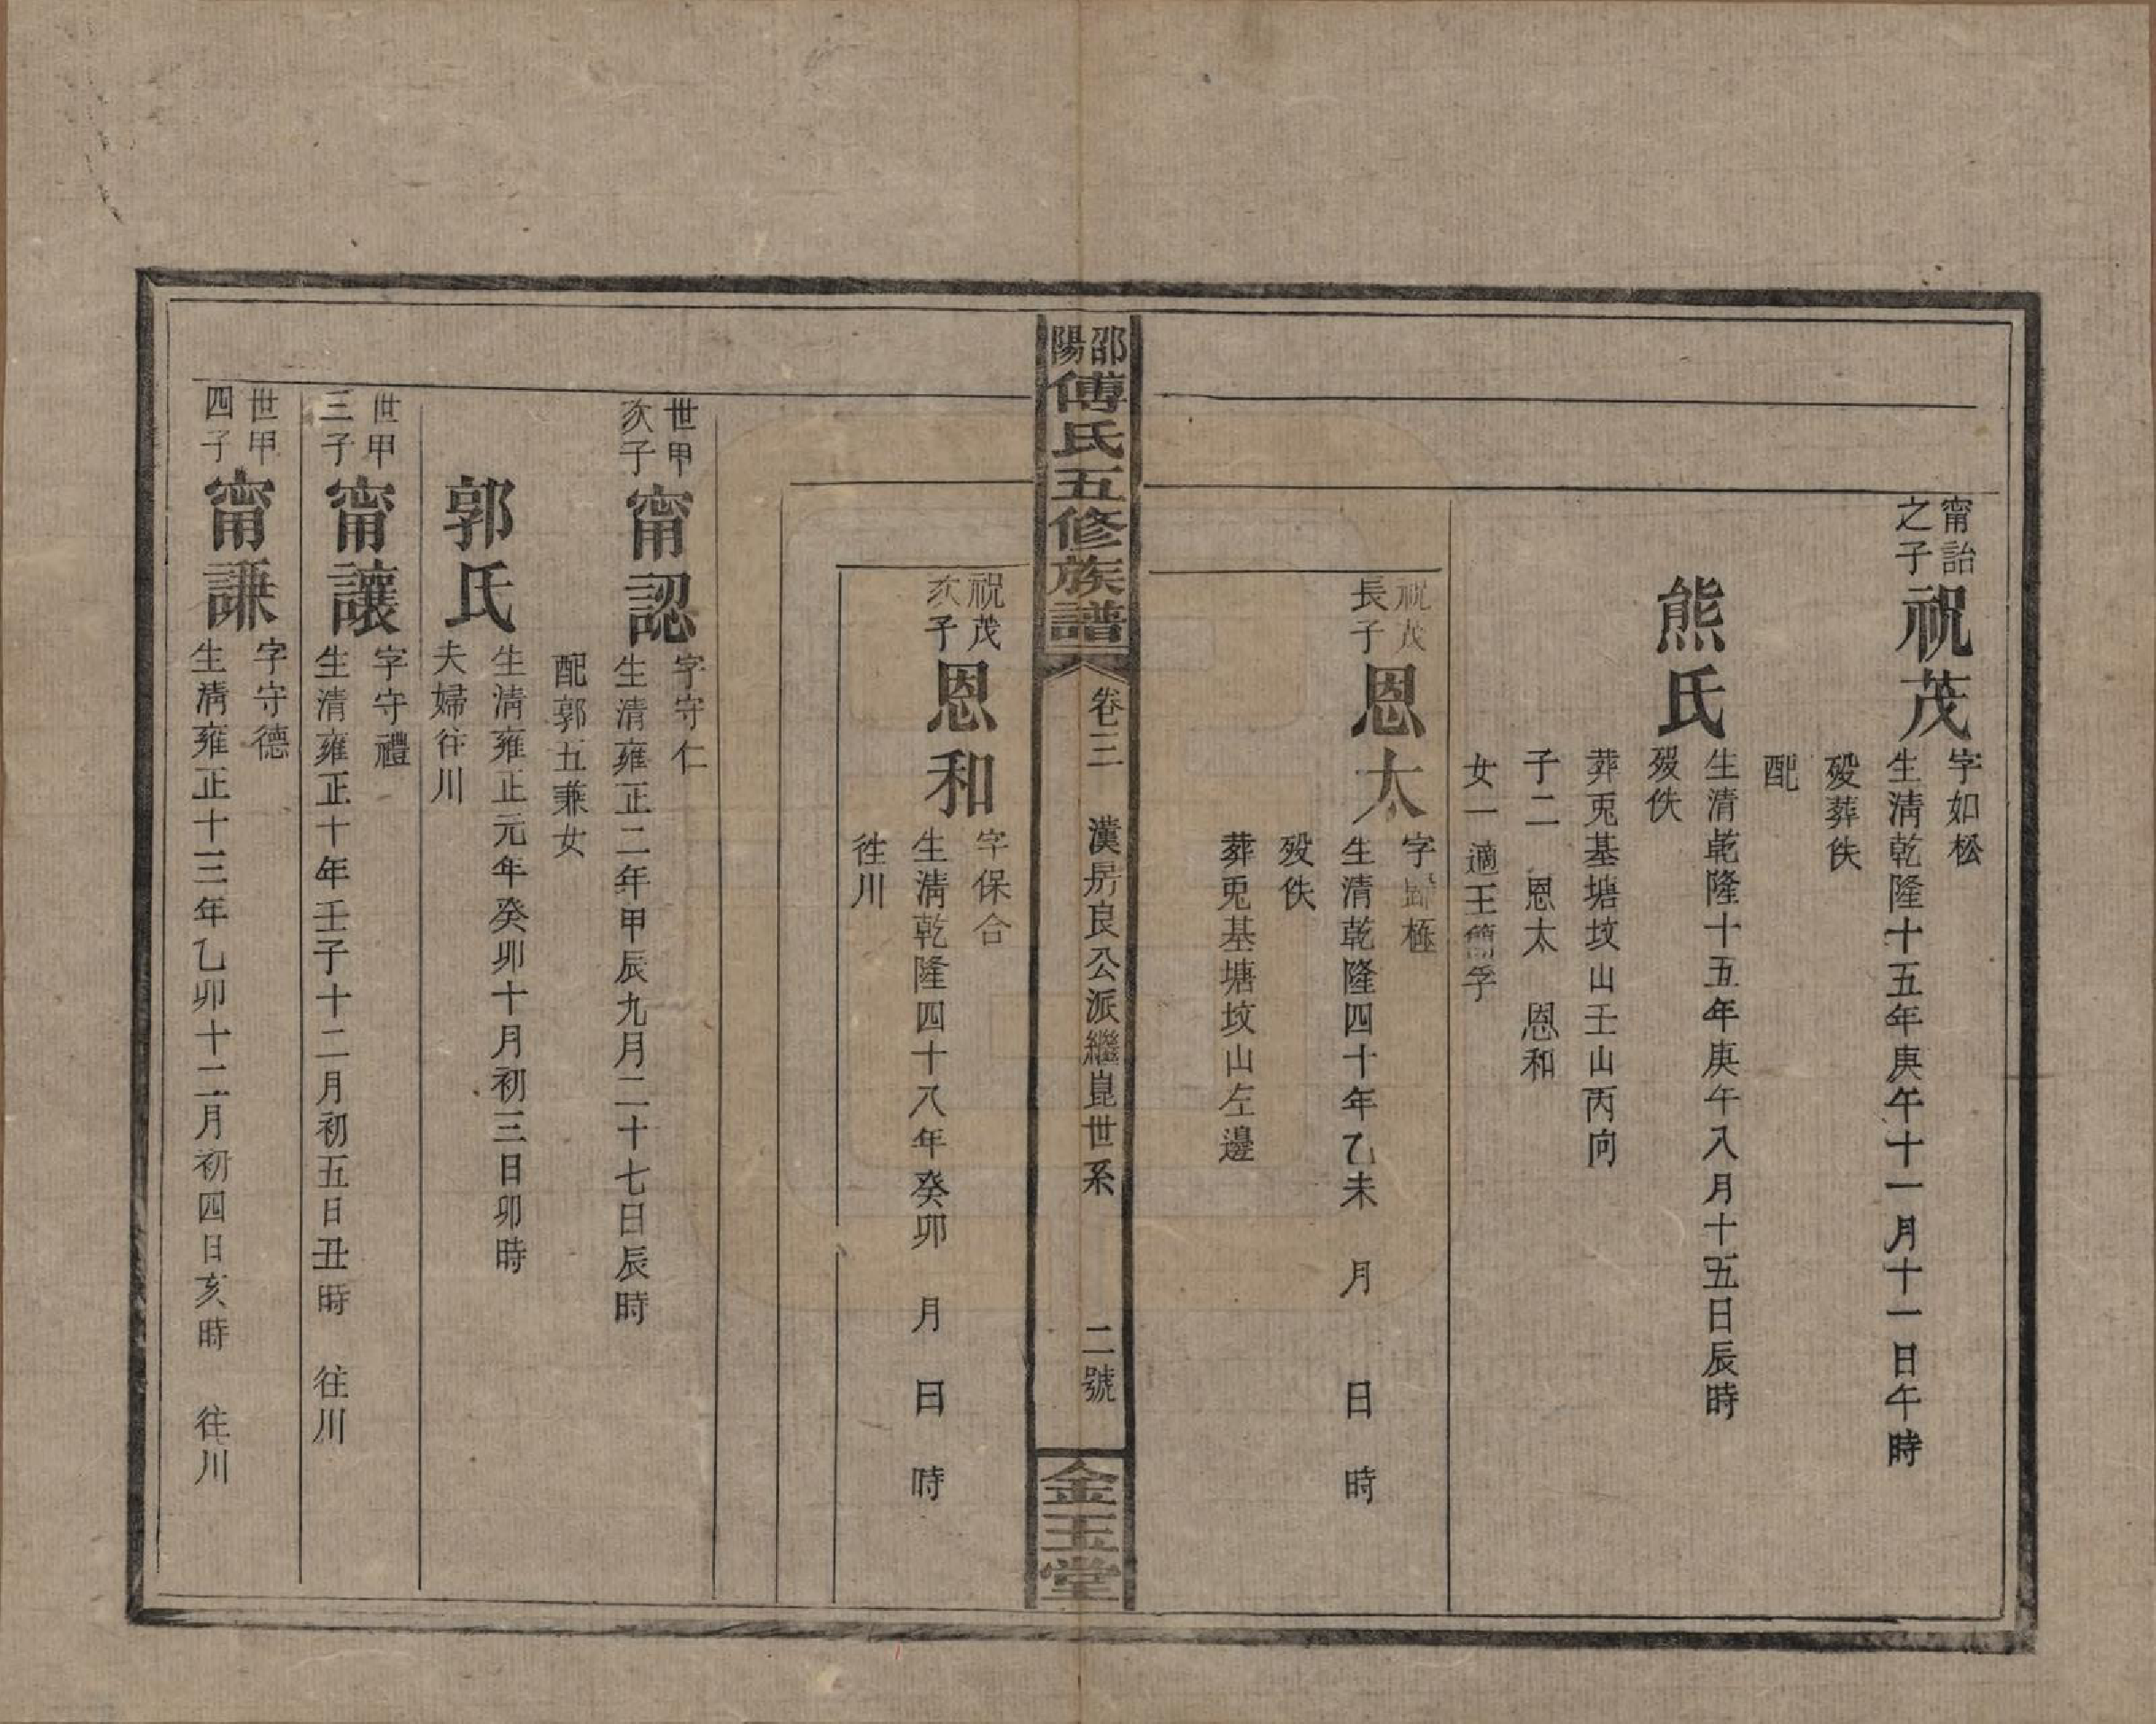 甯詒之子
祝茂
字如松
生清乾隆十五年庚午十一月十一日午時
殁葬佚
配
熊氏
生清乾隆十五年庚午八月十五日辰時
殁佚
葬兎基塘坟山壬山丙向
子二　恩太　恩和
女一適王孚
祝茂長子
恩太
字極
生清乾隆四十年乙未　月　日　時
殁佚
葬兎基塘坟山左邊
邵陽傅氏五修族譜
卷三　漢房良公派繼崑世系　二號
金玉堂
祝茂次子
恩和
字保合
生清乾隆四十八年癸卯　月　日　時
徃川
世甲次子
甯認
字守仁
生清雍正二年甲辰九月二十七日辰時
配郭五兼女
郭氏
生清雍正元年癸卯十月初三日卯時
夫婦徃川
世甲三子
甯讓
字守禮
生清雍正十年壬子十二月初五日丑時　徃川
世甲四子
甯謙
字守德
生清雍正十三年乙卯十二月初四日亥時　徃川